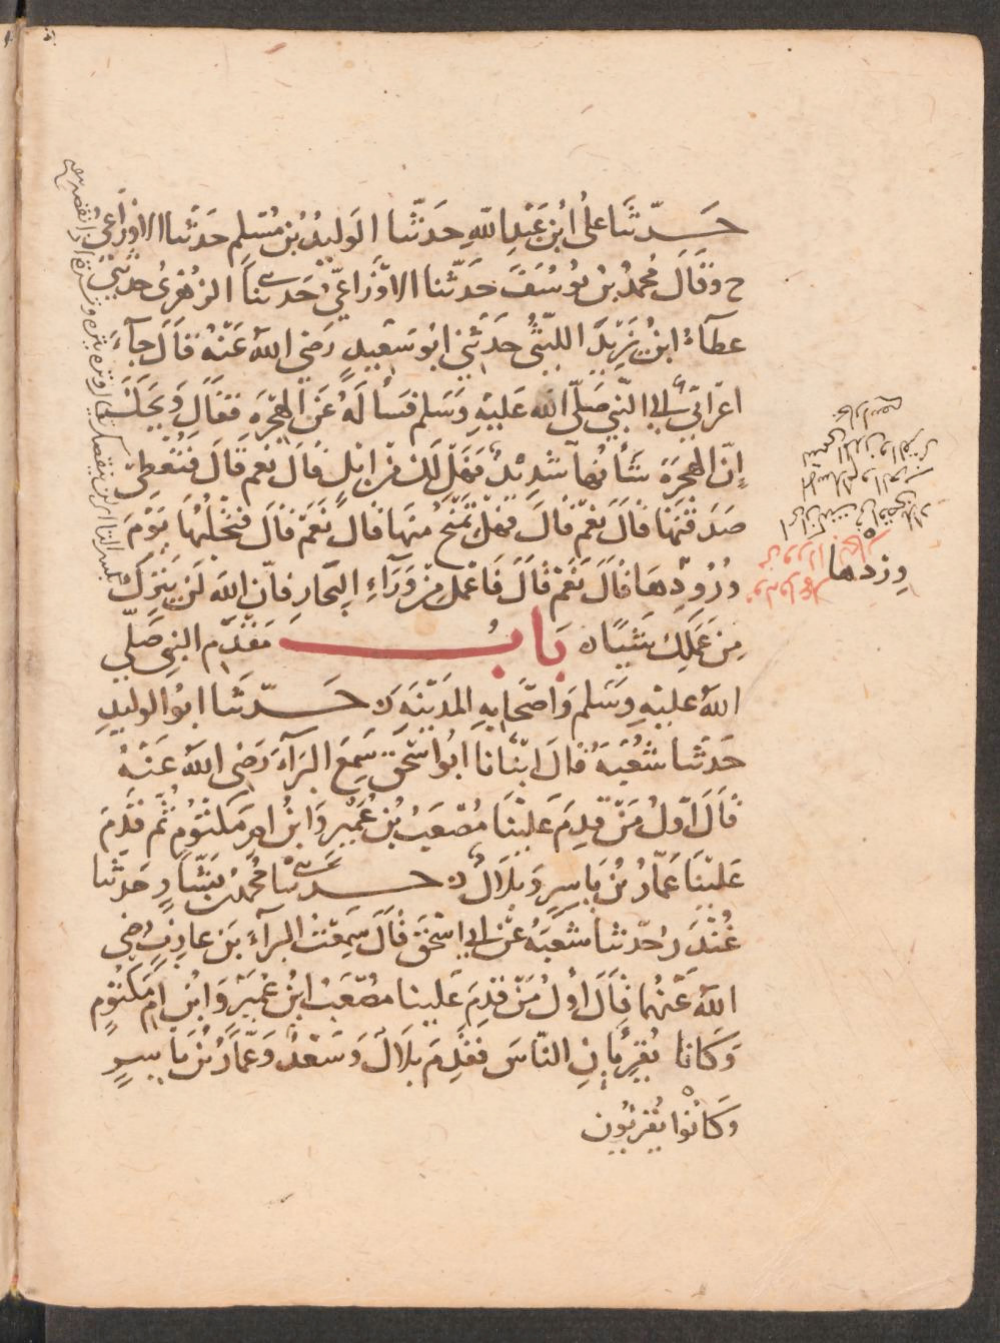 حَدّثَنَا علىُ ابُن عَبْدِاللهِ حَدثّنا الوَليِدُ بُن مُسْلِم حَدثَنا الاوْزَاعىُ
ح وَقَالَ مُحمدُ بن يُوسُفَ حَدثّنا الاوْزَاعىُّ حَدثنَا الزهْرىُ حدثنِى
عطآءُ ابنُ يَزِيْدَ الليْثىُّ حَدثنِى ابوُ سَعِيدٍ رَضى اللهُ عَنْهُ قَالَ جآءَ
اعْرَابىٌّ الى النّبىِ صَلّى الله عَليْهِ وَسَلم فسَألهُ عَن الهِجْرَة فقَالَ وَيحَكَ
اِنّ الهجْرَةَ شَأنُهاَ شَدِيْدٌ فهَلْ لَكَ مِنْ ابلٍ قَالَ نعَم قَالَ فَتُعْطِى
صَدَقتَهَا قَالَ نعَمْ قَالَ فهَلْ تمْنَحُ مِنهَا قَالَ نعَمْ قَالَ فتَحْلُبُهَا يَوْمَ
وُرُودِهَا قَالَ نَعَمْ قَالَ فَاعْمَل مِنْ وَرَآءِ البِحَارِ فاِنّ اللهَ لَنْ يَتِرَكَ
مِنْ عَمَلِكَ شَيْئًا ه بَابُ مَقْدَم النبِى صَلّى
اللهُ عليْهِ وَسَلم وَاصْحَابهِ المَدِيْنَةِ حَدّثَنا ابوُ الوليدِ
حَدثَنا شعْبَة قَالَ انْبَانا ابُو اسْحَقَ سَمِعَ البَرآءَ رَضى اللهُ عَنْهُ
قَالَ اوّلُ مَنْ قدِمَ عَليْنَا مُصْعَبُ بنُ عُمَيْرٍ وَابنُ امِ مَكتُوْمٍ ثُم قدِمَ
عَليْنَا عَمّارُ بنُ يَاسِرٍ وَبلَالٌ حَدثنا مُحمدُ بنُ بَشّارٍ حَدثَنا
غُنْدَرٌ حَدثنا شُعْبَةُ عَنْ ابى اسْحَقَ قَالَ سَمِعْتُ البرآءَ بنَ عازبٍ رَضى
اللهُ عَنْهُما قَالَ اوّلُ مَنْ قدِمَ عَلينا مصْعَبُ ابنُ عُمَيْرٍ وَابنُ امِ مَكتُوْمٍ
وَكَانا يُقْرِئَانِ النّاسَ فقَدِمَ بلَالٌ وَسَعْدٌ وَعَمّارُ بنُ يَاسِرٍ
وَكَانُوْا يُقْرِئُونَ
وِرْدها